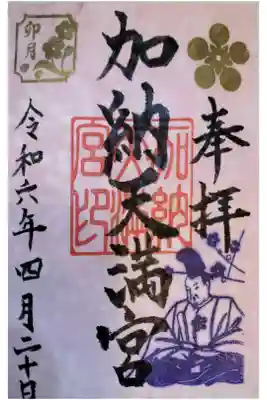 奉拝
加納天満宮
加納天満宮印
令和六年四月二十日
卯月